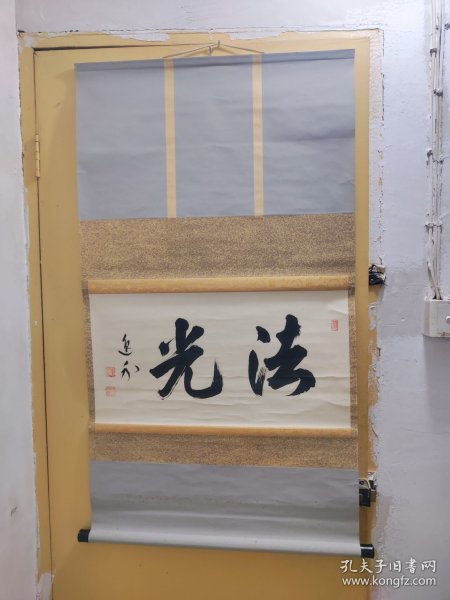 法光
孔夫子旧书网
www.kongfz.com